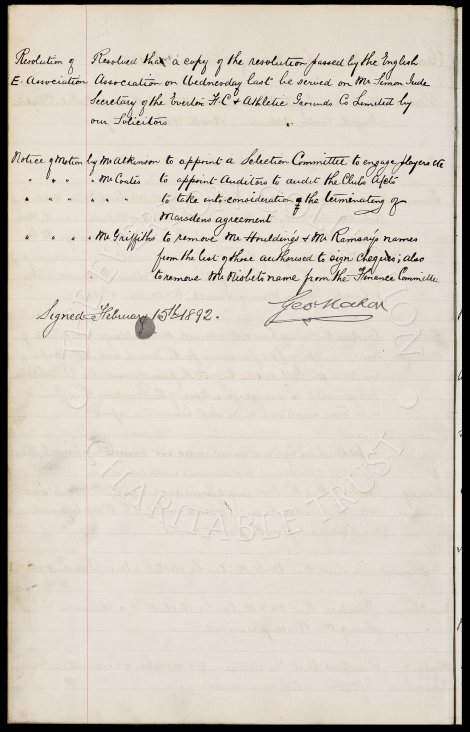 Resolution of Resolved that a copy of the resolution passed by the English
E. Association Association on Wednesday last be served on Mr Simon Jude
Secretary of the Everton F.C & Athletic Grounds Co Limited by
our Solicitors
Notice of Motion by Mr Atkinson to appoint a Selection Committee to engage players etc
" " " " Mr Coates to appoint Auditors to audit the Clubs A/cts
" " " " " " to take into consideration of the terminating of
Marsdens agreement
" " " " Mr Griffiths to remove Mr Houlding's & Mr Ramsay's names
from the list of those authorised to sign cheques; also
to remove Mr Nisbets name from the Finance Committee
Signed February 15th 1892. Geo Mahon
EVERTON
CHARITABLE TRUST